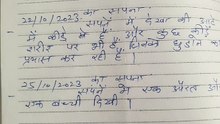 22/10/2023 का सपना
सपने में देखा की
में कीड़े है ।, और कुछ कीड़े
शरीर पर भी है जिनको छुड़ाने का
प्रयास कर रही हूँ ।
25/10/2023 का सपना
सपने में एक औरत
एक बच्ची दिखी ।